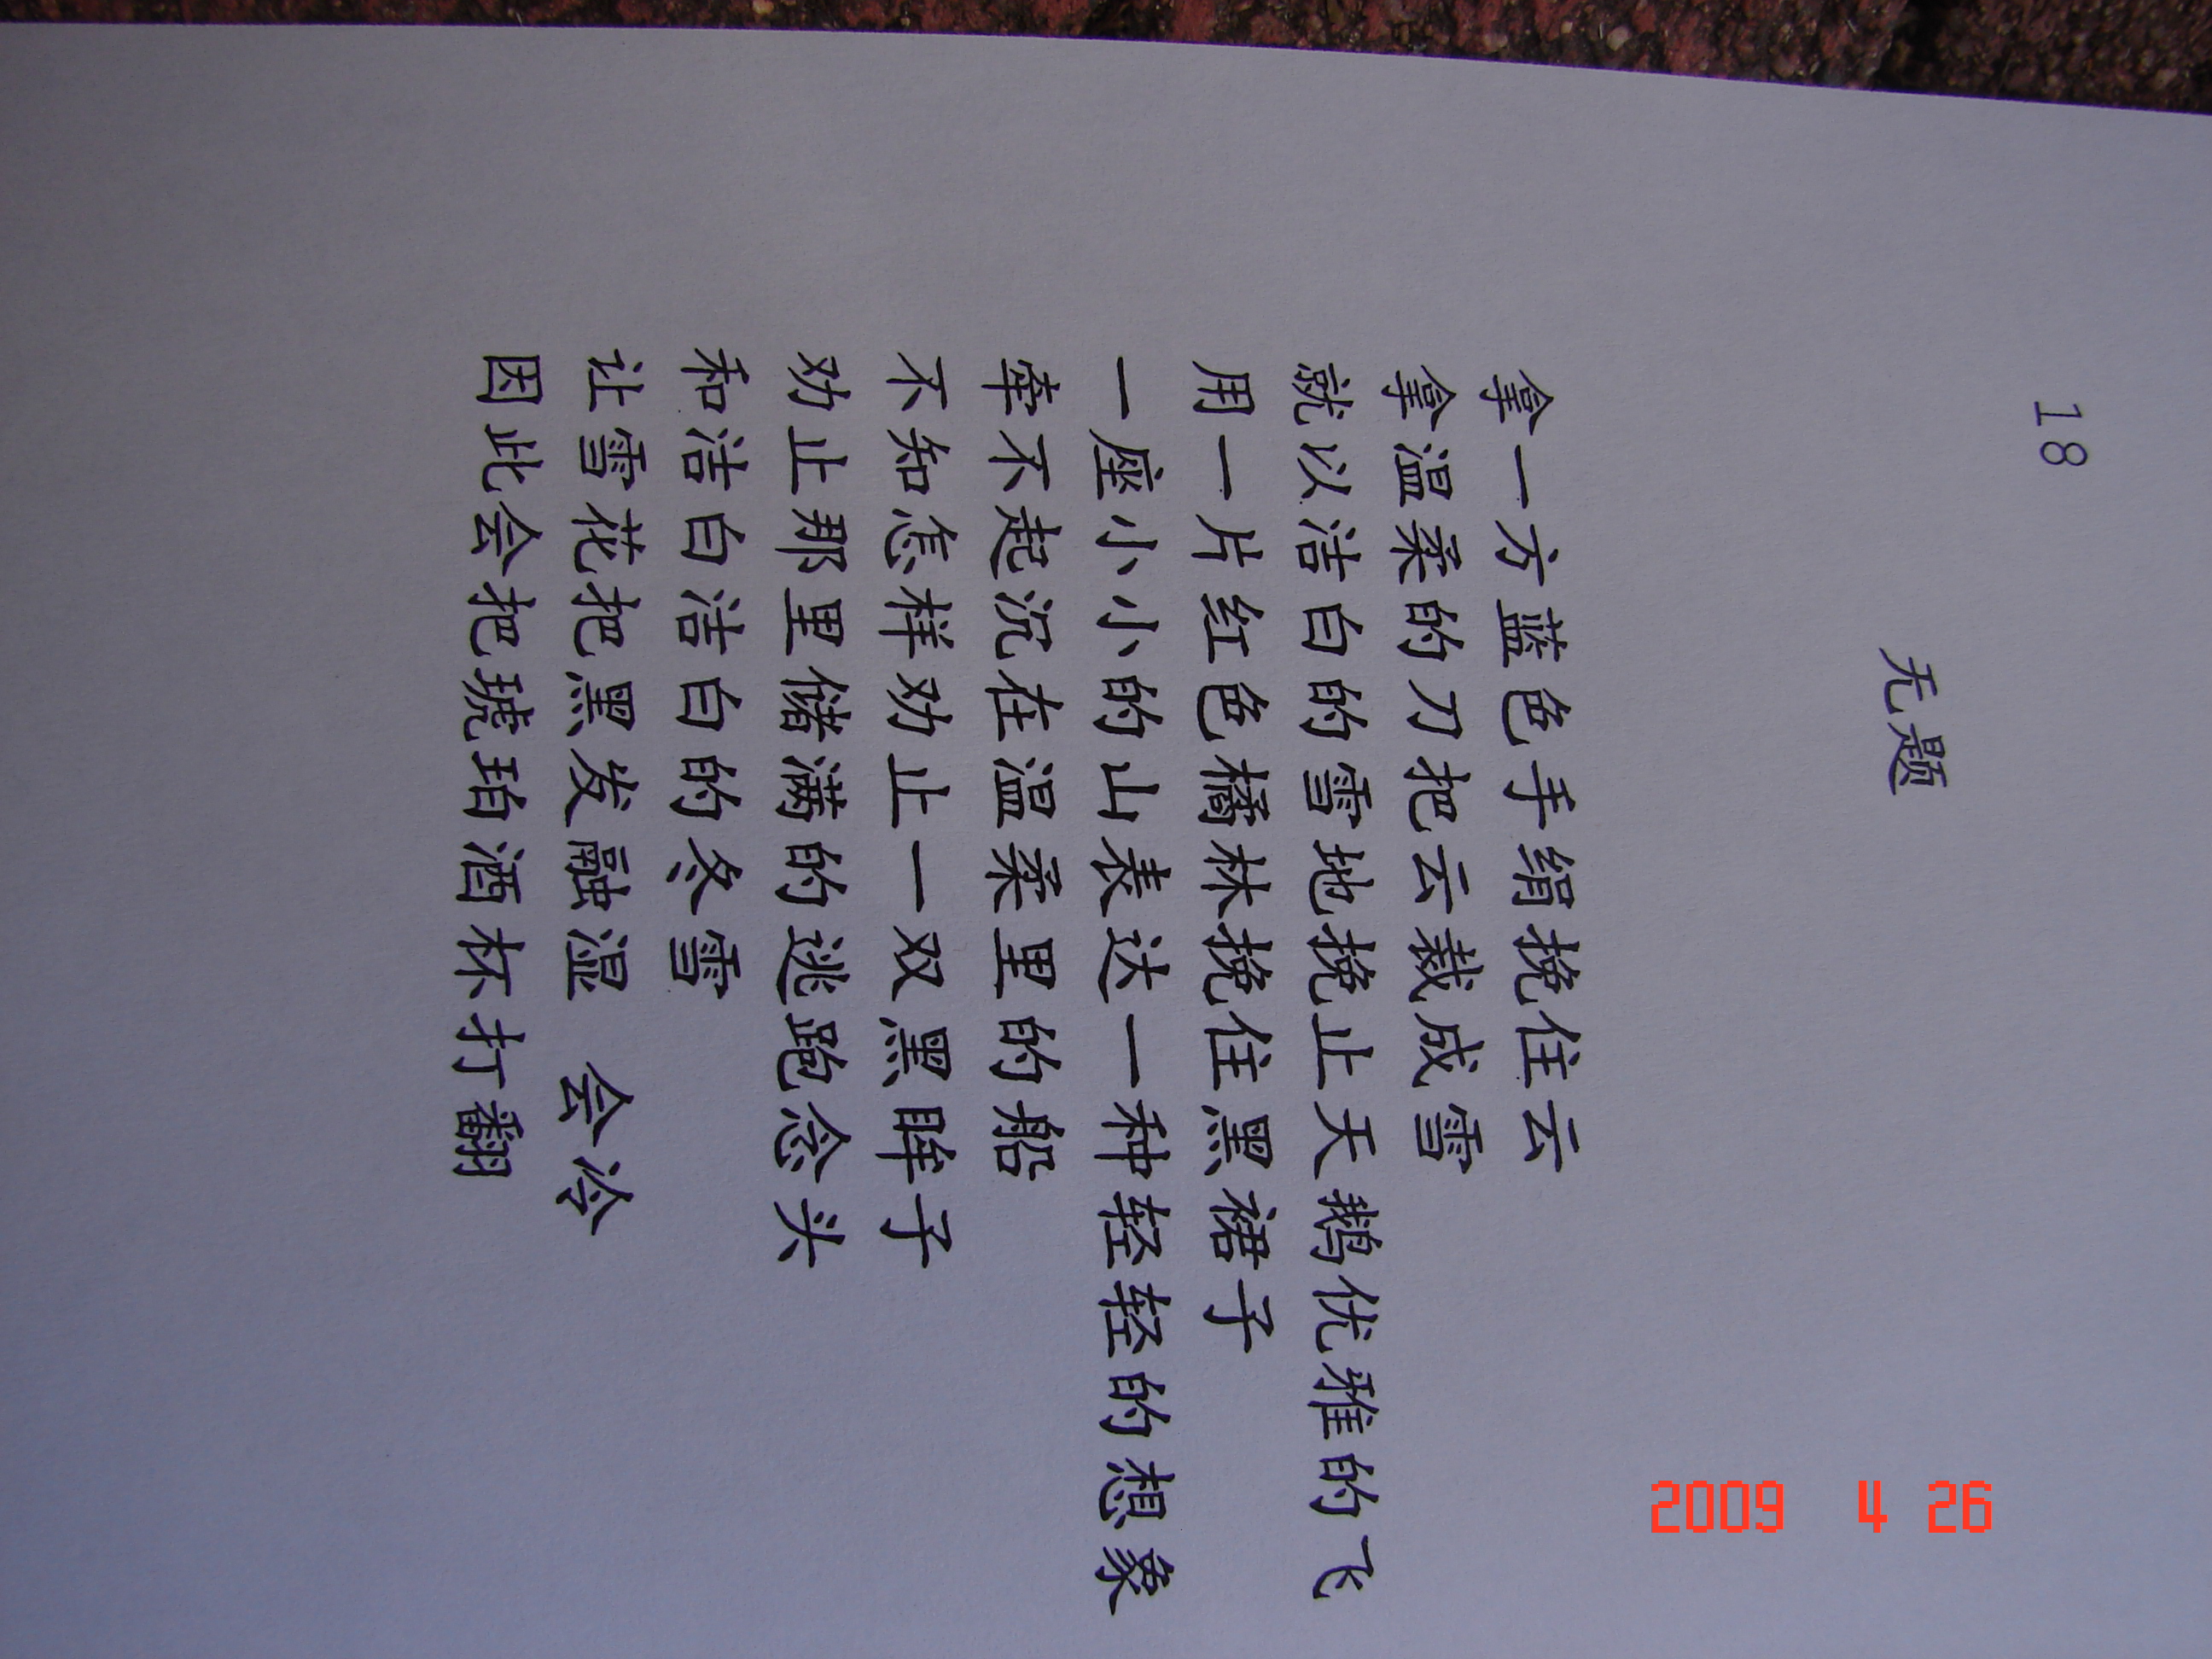 18
无题
拿一方蓝色手绢挽住云
拿温柔的刀把云裁成雪
就以洁白的雪地挽止天鹅优雅的飞
用一片红色橘林挽住黑裙子
一座小小的山表达一种轻轻的想象
牵不起沉在温柔里的船
不知怎样劝止一双黑眸子
劝止那里储满的逃跑念头
和洁白洁白的冬雪
让雪花把黑发融湿 会冷
因此会把琥珀酒杯打翻
2009 4 26